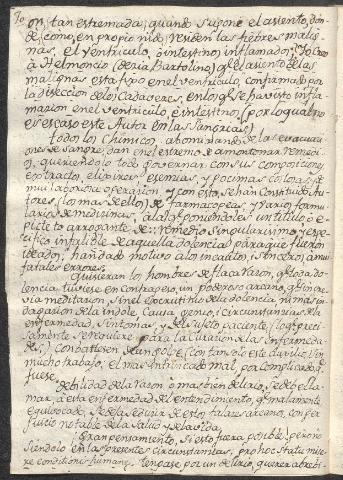 70
on, tan estremada; quando supone el asiento, don-
de, como, en propio nido residen las fiebres malig-
nas, el ventriculo, è intestinos inflamado; Yo Creo
à Helmoncio (decia Bartolino) q.e el asiento de las
malignas esta fixo en el ventriculo, confirmado por
la diseccion de los Cadaveres, en los q.e se ha visto infla-
macion en el ventriculo, è intestino, (por lo qual no
es escaso este Autor en las Sangrias)
Todos los Chimicos, abominando de las evacuacio-
nes de sangre, dan en el estremo de amontonar remedi-
os, queriendolo todo governar con sus composiciones,
extractos, elixires, esemias, y pocimas
mui laboriosa operacion, y con esto, se han Constituido Au-
tores (lo mas de ellos) de farmacopeas, y varios formu-
larios de medicinas, à las q.e poniendoles un titulo ò e-
picteto arrogante de: remedio singularisimo, y espe-
cifico infalible de aquella dolencia para que fueron
ideados; han dado motivo à los incautos, è sinceros, à mu
fatales errores.
Quisieran los hombres de flaca razon, q.e toda do-
lencia tuviese en contrapeso, un poderoso arcano, q.e sin pre-
via meditacion, sin el Escrutinio de la dolencia, ni mas in-
dagacion de la indole, Causa, genio, i Circunstancias de la
enfermedad, Sintomas, y del sujeto paciente, (lo q.e preci-
samente se requiere para la Curacion de las enfermeda-
des,) Combatiesen de un golpe (con tan solo este auxilio) sin
mucho trabajo, el mas intrincado mal, por complicado q.e
fuese.
Debilidad de la razon, ò mas bien delirio, se debe lla-
mar, à esta enfermedad del entendimiento, q.e malamente
equivocado, se deja seducir de estos falaces arcanos, con per-
juicio notable de la Salud y de la vida.
Gran pensamiento, si esto fuera posible! pero no
siendolo en las presentes circunstancias, pro hoc Statu mise-
re conditionis humane, tengase por un delirio, querer abreti-